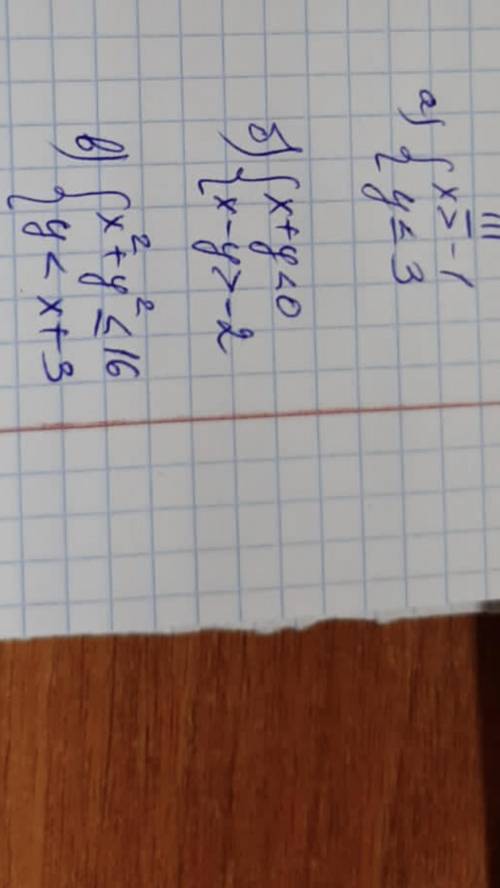 III
а) { x ≥ -1
y ≤ 3
б) { x + y < 0
x - y > -2
в) { x² + y² ≤ 16
y < x + 3